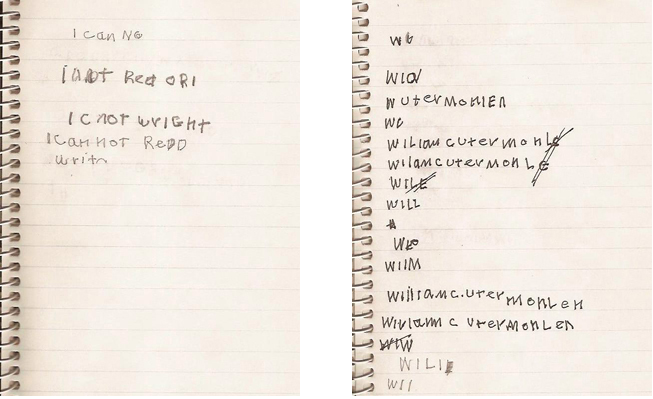 I can No
I not Red ORI
I C not wright
I can not Redd
write
WC
Wid
W utermohlen
WC
Wiliam C utermohle
wilamcutermohle
WILE
WILL
WLO
WIIM
William C. utermohlen
William C utermohlen
WIW
WILI
WII